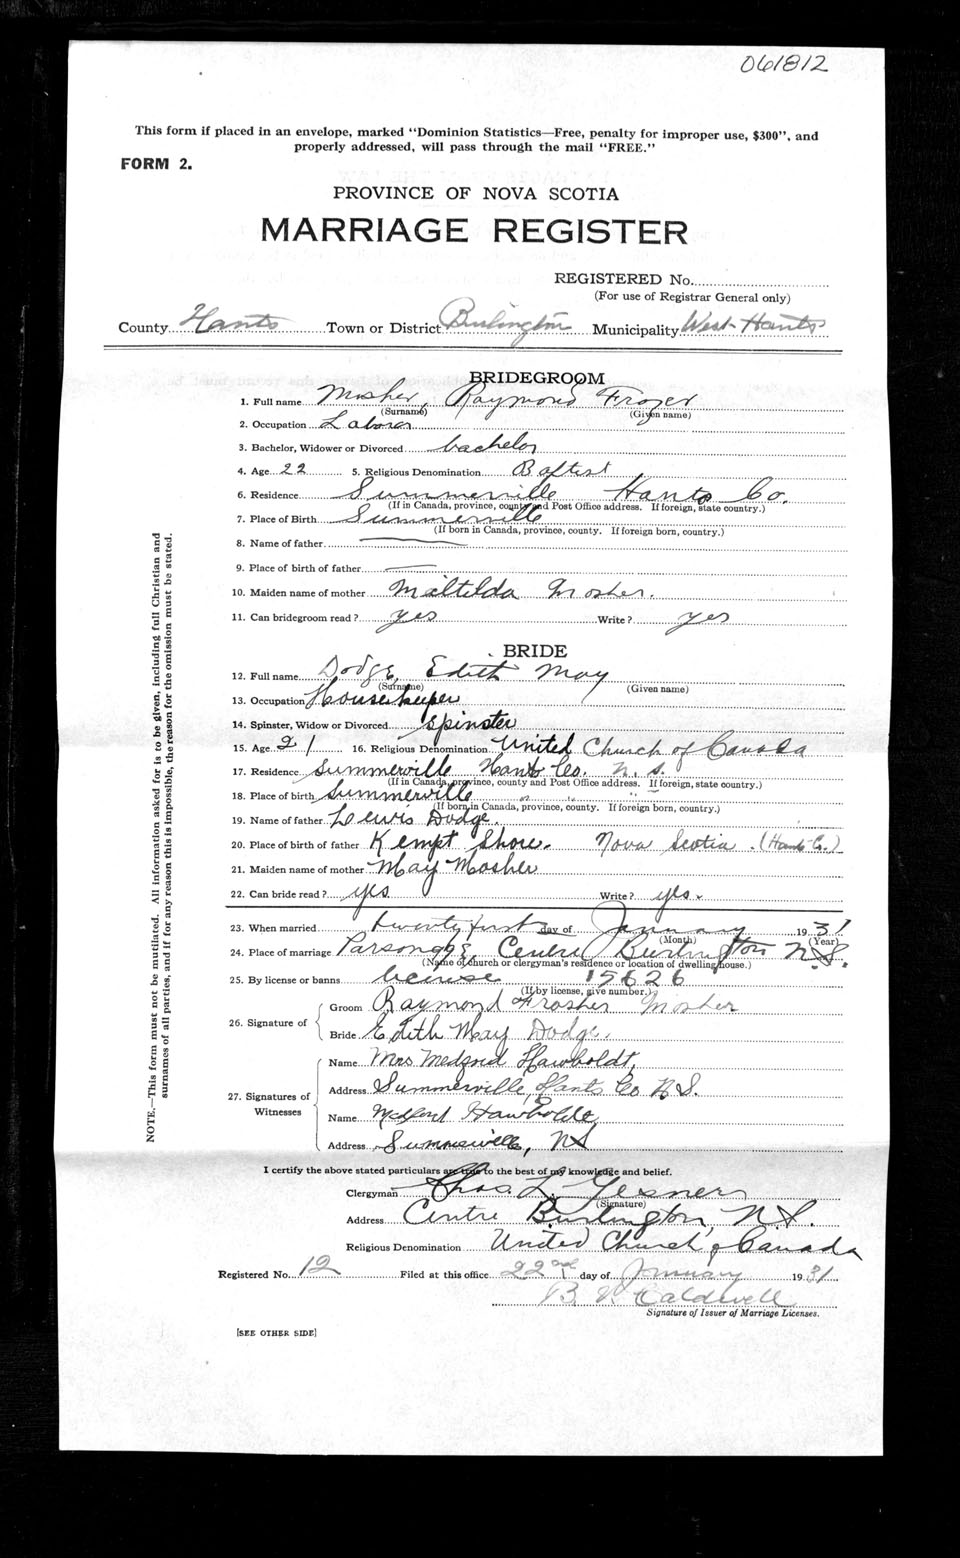 061812
This form if placed in an envelope, marked "Dominion Statistics—Free, penalty for improper use, $300", and
properly addressed, will pass through the mail "FREE."
FORM 2.
PROVINCE OF NOVA SCOTIA
MARRIAGE REGISTER
REGISTERED No.
(For use of Registrar General only)
County Hants Town or District Burlington Municipality West Hants
BRIDEGROOM
1. Full name Mosher, Raymond Frozer
(Surname) (Given name)
2. Occupation Laborer
3. Bachelor, Widower or Divorced bachelor
4. Age 22 5. Religious Denomination Baptist
6. Residence Summerville Hants Co.
(If in Canada, province, county and Post Office address. If foreign, state country.)
7. Place of Birth Summerville
(If born in Canada, province, county. If foreign born, country.)
8. Name of father —
9. Place of birth of father —
10. Maiden name of mother Miltilda Mosher.
11. Can bridegroom read? yes Write? yes
BRIDE
12. Full name Dodge, Edith May
(Surname) (Given name)
13. Occupation Housekeeper
14. Spinster, Widow or Divorced Spinster
15. Age 21 16. Religious Denomination United Church of Canada
17. Residence Summerville Hants Co. N. S.
(If in Canada, province, county and Post Office address. If foreign, state country.)
18. Place of birth Summerville " " "
(If born in Canada, province, county. If foreign born, country.)
19. Name of father Lewis Dodge.
20. Place of birth of father Kempt Shore. Nova Scotia. (Hants Co.)
21. Maiden name of mother May Mosher
22. Can bride read? yes. Write? yes.
23. When married twenty first day of January 1931
(Month) (Year)
24. Place of marriage Parsonage, Centre Burlington N.S.
(Name of church or clergyman's residence or location of dwelling house.)
25. By license or banns license 15626
(If by license, give number.)
26. Signature of
Groom Raymond Frosher Mosher
Bride Edith May Dodge.
27. Signatures of Witnesses
Name Mrs Hawboldt,
Address Summerville, Hants Co N.S.
Name Medford Hawboldt
Address Summerville, NS
I certify the above stated particulars are true to the best of my knowledge and belief.
Clergyman Chas. L. Gesner
(Signature)
Address Centre Burlington, N.S.
Religious Denomination United Church of Canada
Registered No. 12 Filed at this office 22nd day of January 1931
B Caldwell
Signature of Issuer of Marriage Licenses.
[SEE OTHER SIDE]
NOTE.—This form must not be mutilated. All information asked for is to be given, including full Christian and
surnames of all parties, and if for any reason this is impossible, the reason for the omission must be stated.